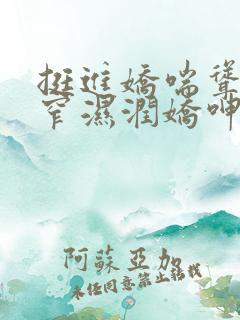 挺進嬌喘聳
窄濕潤嬌呻
阿蘇亞加
未任同意禁止轉載